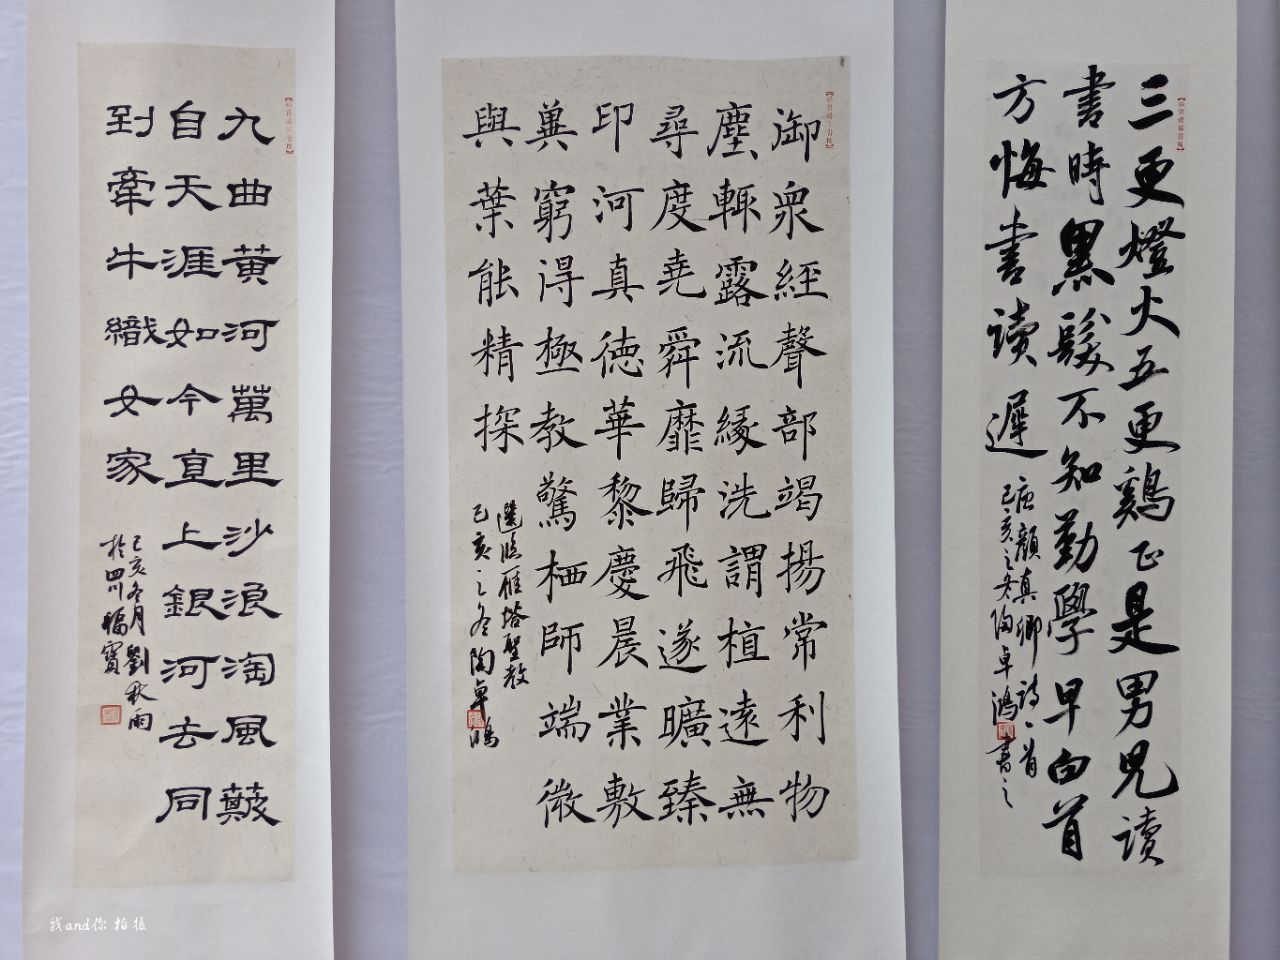 三更燈火五更鷄正是男兒讀
書時黑髮不知勤學早白首
方悔書讀遲
唐顏真卿詩一首
己亥之冬陶卓鴻書之
御衆經聲部竭揚常利物
塵輙露流緣洗謂植遠無
尋度堯舜靡歸飛遂曠臻
印河真德華黎慶晨業敷
冀窮得極教驚栖師端微
與葉能精探
選臨雁塔聖教
己亥之冬陶卓鴻
九曲黃河萬里沙浪淘風簸
自天涯如今直上銀河去同
到牽牛織女家
己亥冬月劉秋雨
於四川
我and你 拍摄